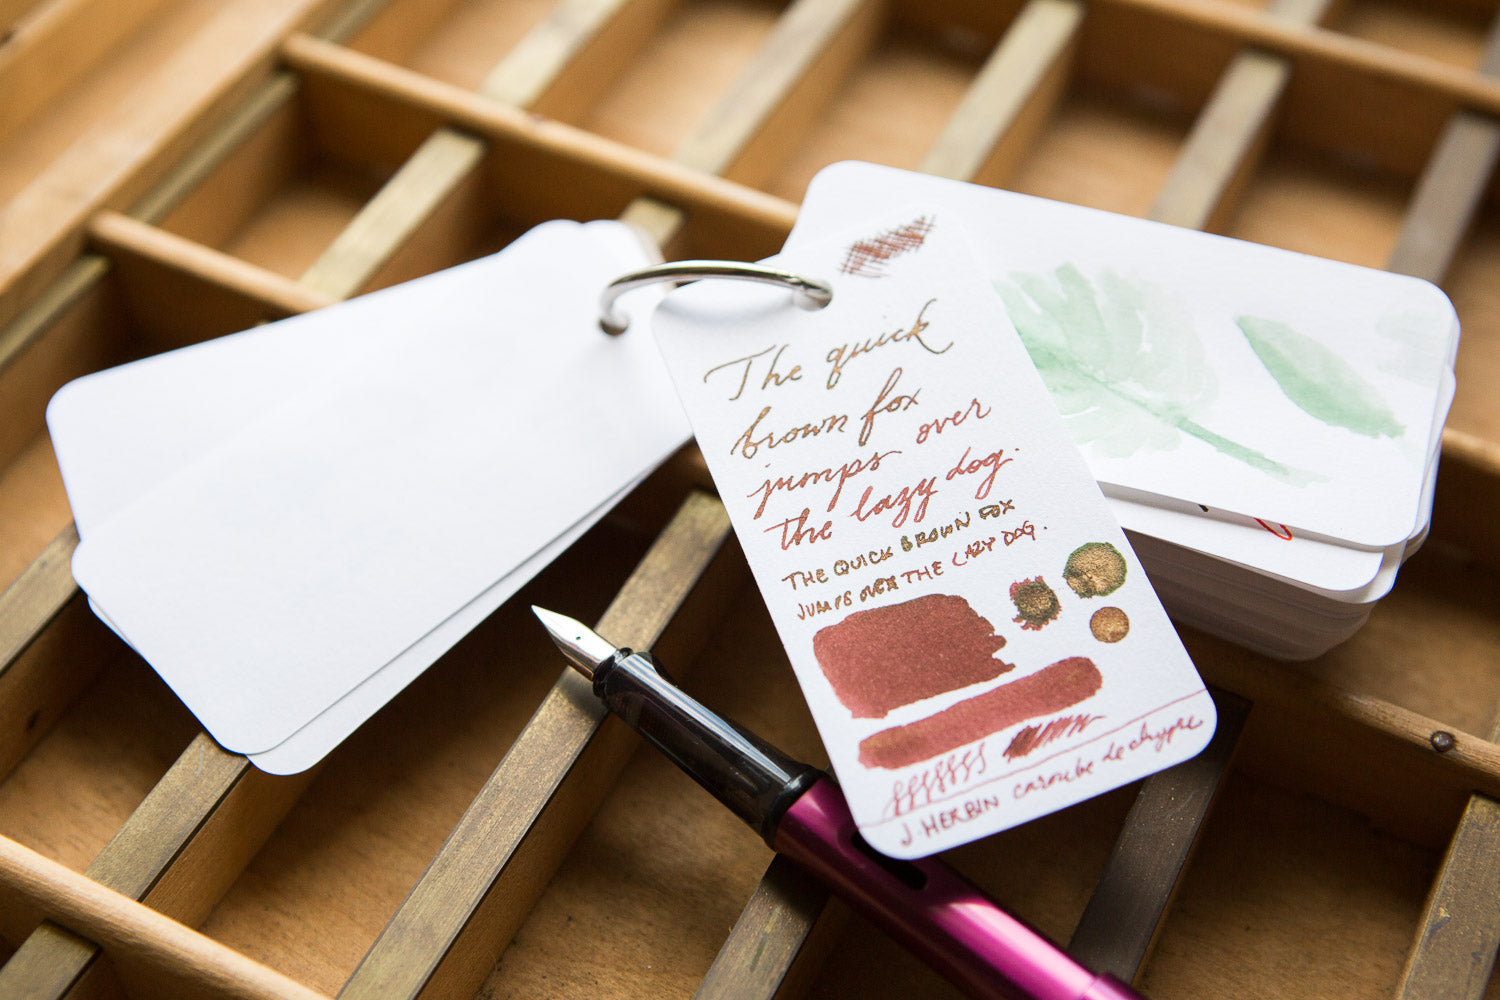 The quick
brown fox
jumps over
the lazy dog.
THE QUICK BROWN FOX
JUMPS OVER THE LAZY DOG.
J. HERBIN caroube de chypre